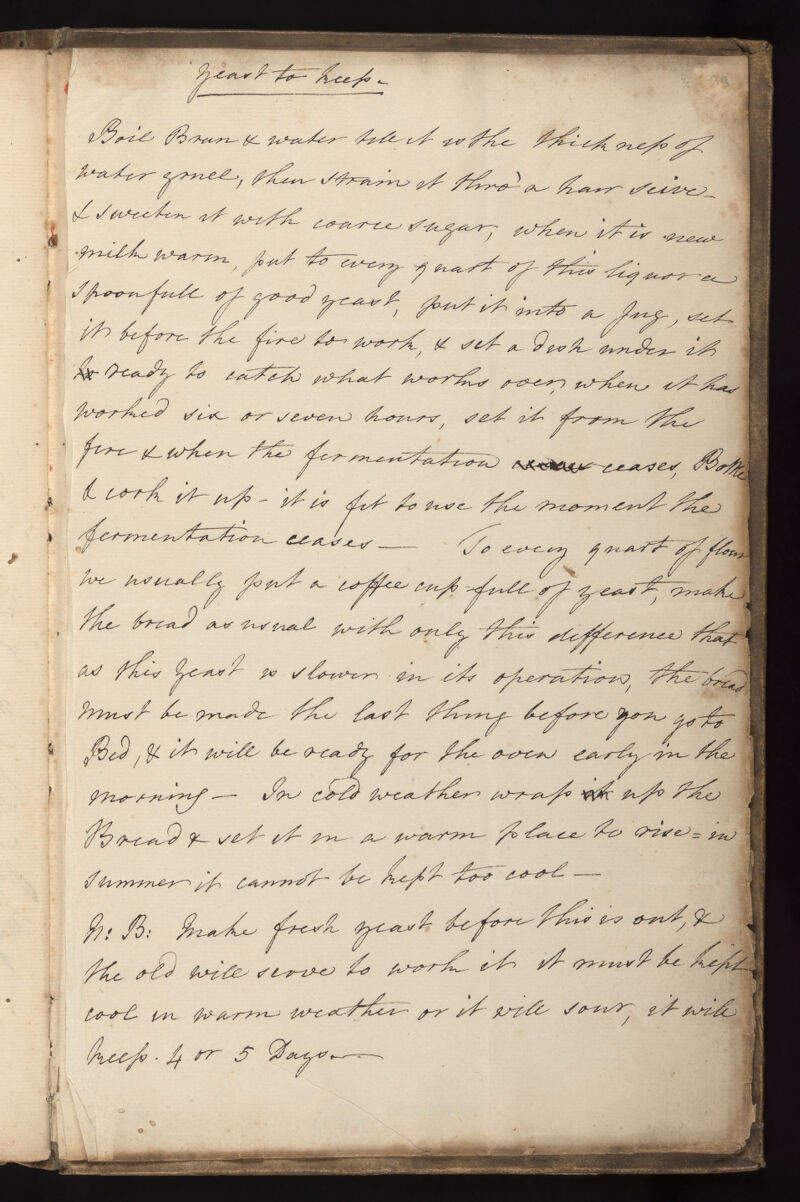 Yeast to keep.
Boil Bran & water till it is the thickness of
water gruel, then strain it thro' a hair seive
& sweeten it with coarce sugar, when it is new
milk warm, put to every quart of this liquor a
spoonfull of good yeast, put it into a Jug, set
it before the fire to work, & set a dish under it
to ready to catch what works over, when it has
worked six or seven hours, set it from the
fire & when the fermentation ceases, Bottle
& cork it up - it is fit to use the moment the
fermentation ceases — To every quart of flour
we usually put a coffee cup-full of yeast, make
the bread as usual with only this difference that
as this yeast is slower in its operation, the bread
must be made the last thing before you go to
Bed, & it will be ready for the oven early in the
morning — In cold weather wrap it up the
Bread & set it in a warm place to rise = in
summer it cannot be kept too cool —
N: B: Make fresh yeast before this is out, &
the old will serve to work it it must be kept
cool in warm weather or it will sour, it will
keep. 4 or 5 Days. —